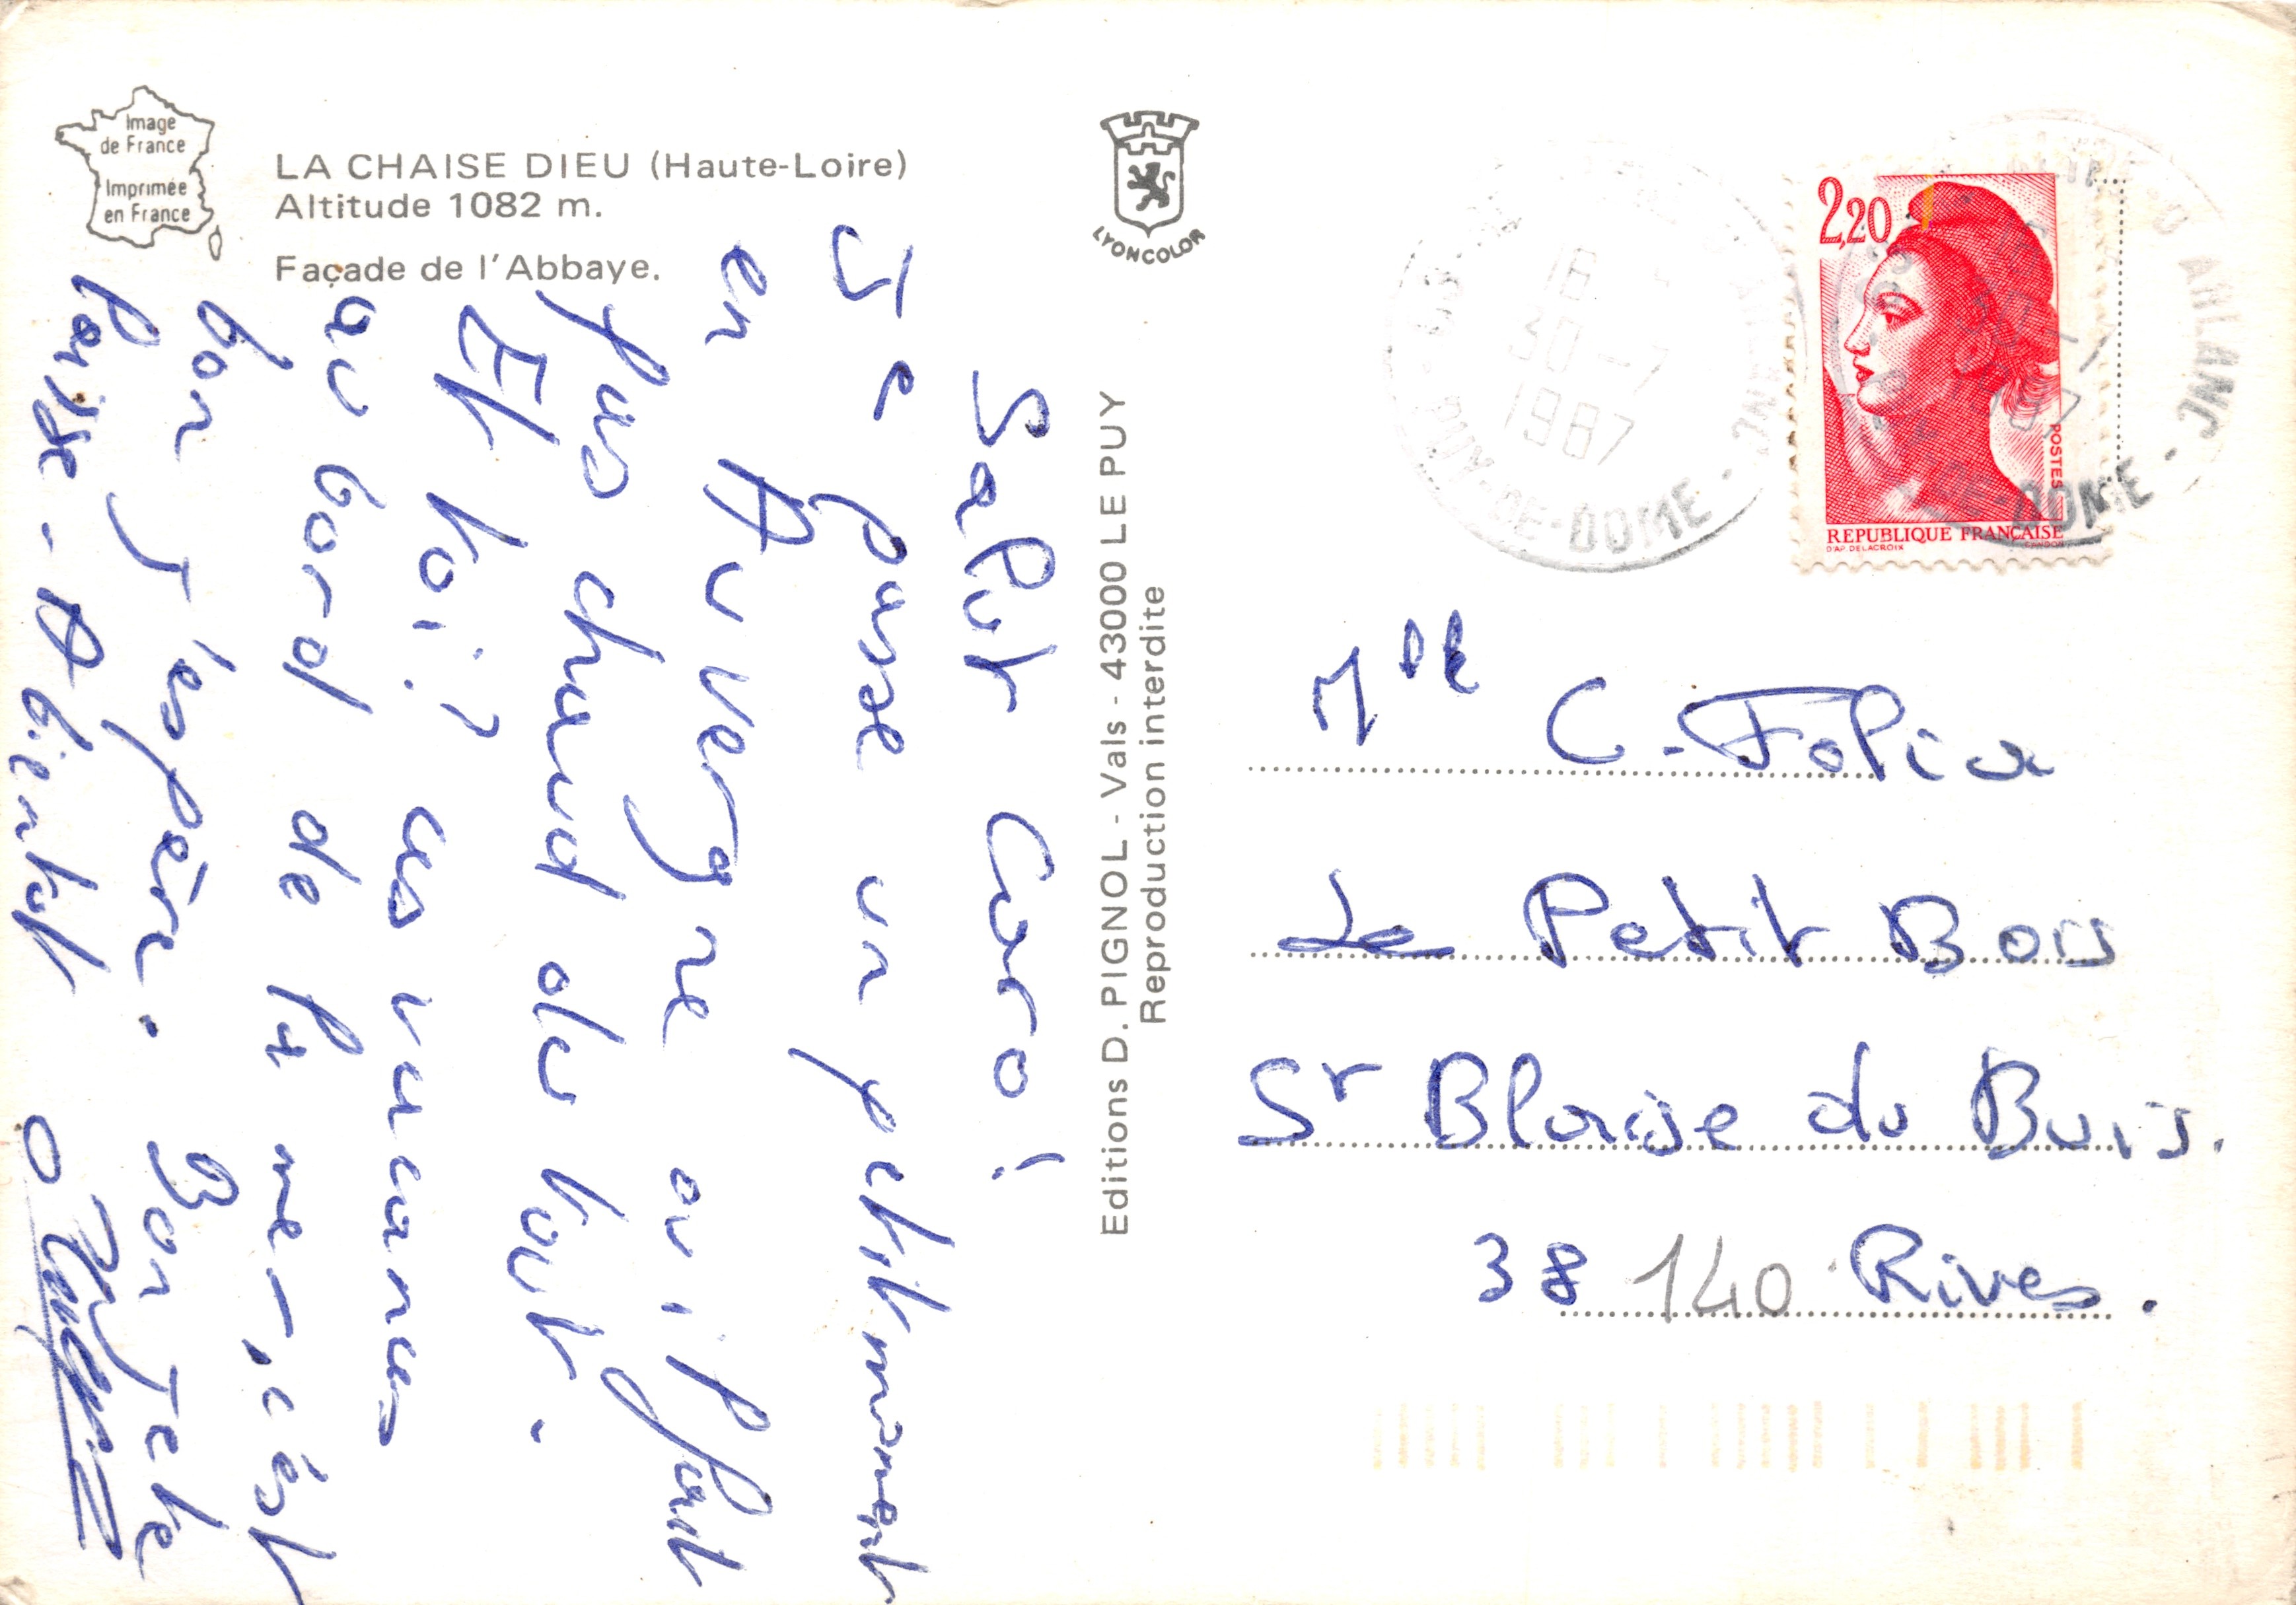 Image
de France
Imprimée
en France
LA CHAISE DIEU (Haute-Loire)
Altitude 1082 m.
Façade de l'Abbaye.
LYONCOLOR
Editions D. PIGNOL - Vals - 43000 LE PUY
Reproduction interdite
Salut Caro !
Je passe un petit moment
en Auvergne où il fait
pas chaud du tout.
Et toi ? as vacances
au bord de la mer, c'est
bon j'espère. Bon je te
laisse. A bientôt
18
30-7
1987
PUY-DE-DOME
ARLANC
2,20
POSTES
REPUBLIQUE FRANÇAISE
D'AP. DELACROIX
GANDON
Mlle C. Folia
Le Petit Bois
St Blaise du Buis.
38 140 Rives.